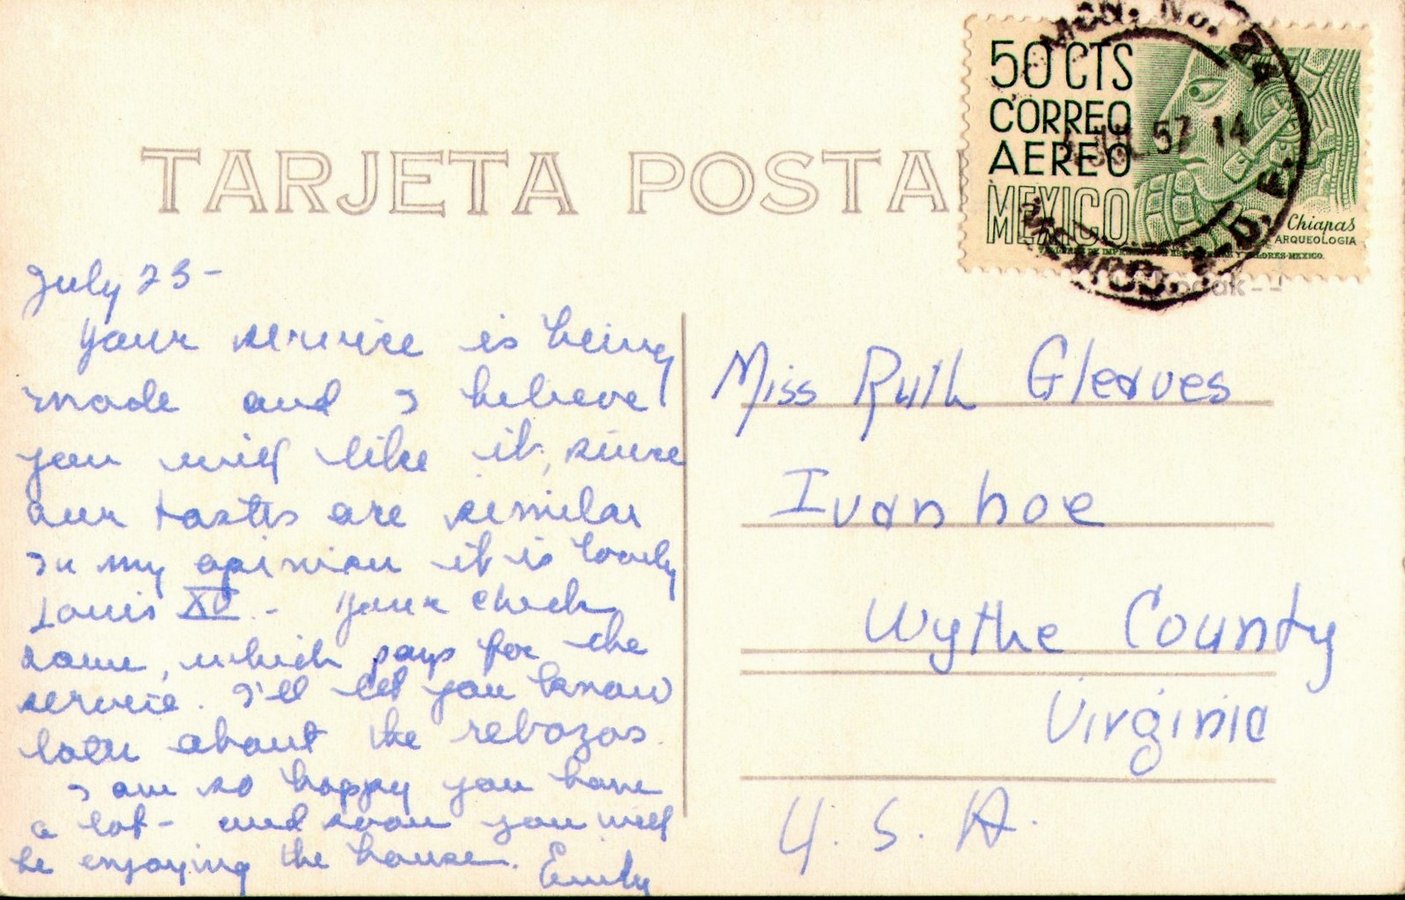 TARJETA POSTA
50 CTS
CORREO
AEREO
MEXICO
Chiapas
ARQUEOLOGIA
JUL 57 14
July 23 -
Your service is being
made and I believe
you will like it, since
our tastes are similar
In my opinion it is lovely
Louis XV. - Your check
came, which pays for the
service. I'll let you know
later about the rebozos.
I am so happy you have
a lot - and soon you will
be enjoying the house. Emily
Miss Ruth Gleaves
Ivanhoe
Wythe County
Virginia
U. S. A.